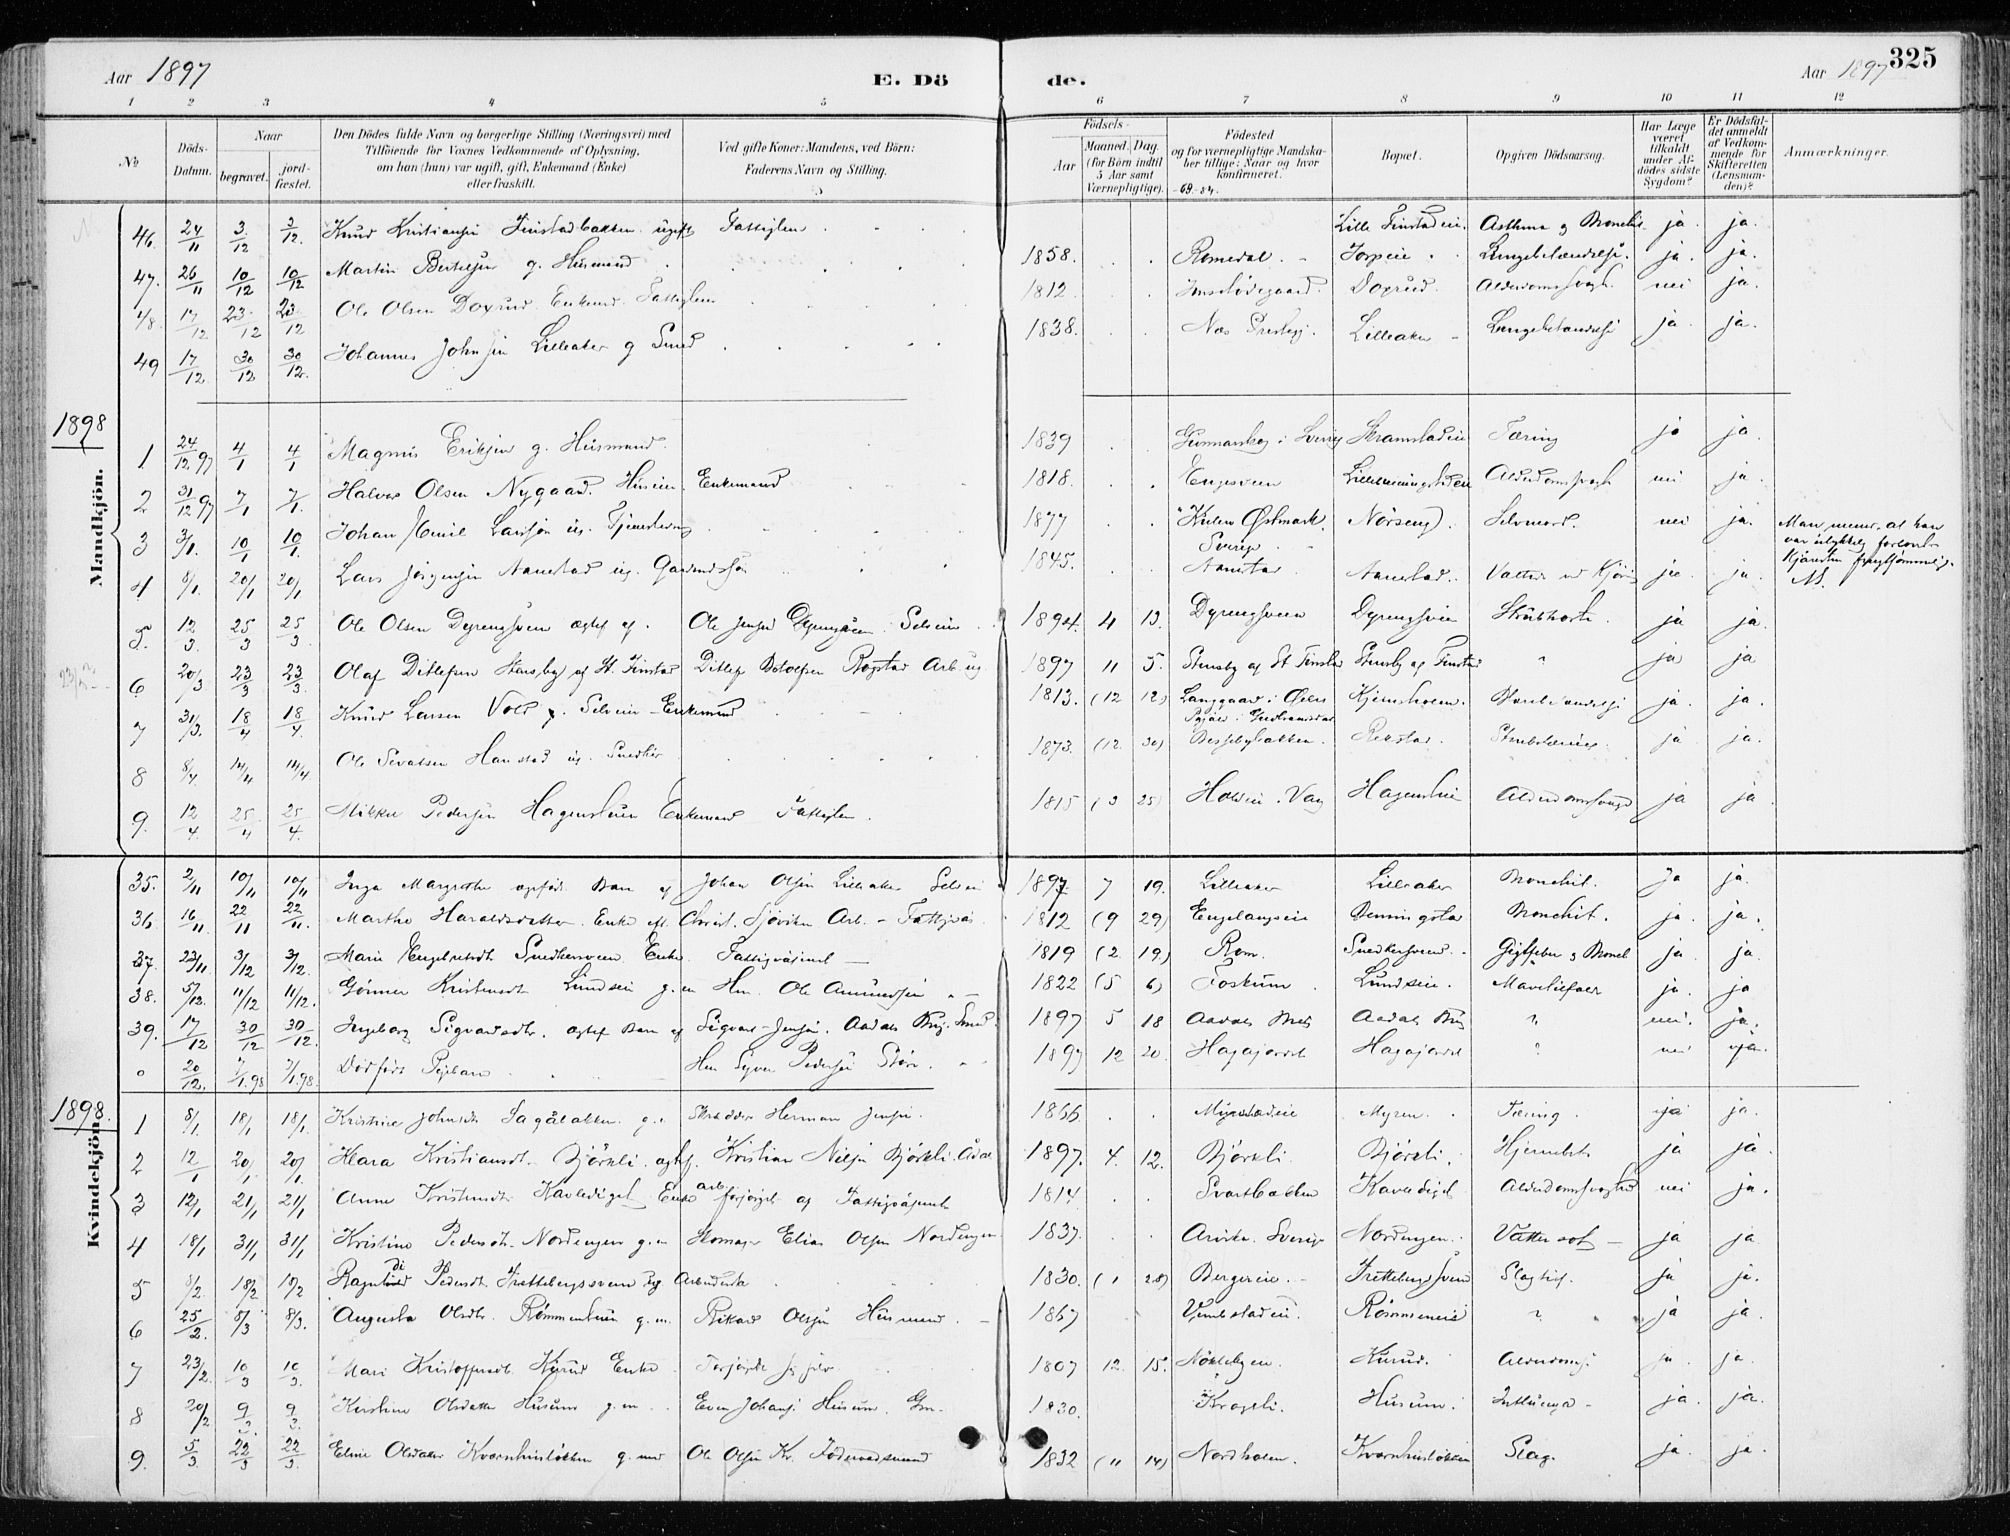 Aar 1897 E. Dö de. Aar 1897 325
1 2 3 4 5 6 7 8 9 10 11 12
No
Döds-Datum.
Naar begravet. jordfæstet.
Den Dödes fulde Navn og borgerlige Stilling (Næringsvei) med
Tilföiende for Voxnes Vedkommende af Oplysning,
om han (hun) var ugift, gift, Enkemand (Enke)
eller fraskilt.
Ved gifte Koner: Mandens, ved Börn:
Faderens Navn og Stilling.
Födsels-
Aar Maaned. Dag.
(for Börn indtil 5 Aar samt Værnepligtige).
Födested
og for værnepligtige Mandskaber tillige: Naar og hvor konfirmeret.
-69-84.
Bopæl.
Opgiven Dödsaarsag.
Har Læge været tilkaldt under Afdödes sidste Sygdom?
Er Dödsfaldet anmeldt af Vedkommende for Skifteretten (Lensmanden)?
Anmærkninger.
Mandkjön.
46. 24/11 3/12 3/12 Knud Kristiansen Finstadbakken ugift Fattiglem Lille Finstadeie. Asthma og Bronchit ja. ja.
47. 26/11 10/12 10/12 Martin Bertelsen g. Husmand 1858. Romedal Torpeie Lungebetændelse. ja. ja.
48. 17/12 23/12 23/12 Ole Olsen Doxrud Enkemd. Fattiglem 1812 Doxrud. Alderdomssvagh. nei ja.
49 17/12 30/12 30/12 Johannes Johnsen Lilleaker g Smed 1838. Nes Prestegj. Lilleaker Lungebetændelse ja. ja.
1898
1 24/12 97 4/1 4/1 Magnus Eriksen g. Husmand 1839 Gunnarskog i Sverig Tæring ja ja.
2 31/12 97 7/1 7/1 Halvor Olsen Nygaard. Enkemand 1818. Engesveen Alderdomssvagh nei ja.
3 3/1. 10/1 10/1. Johan Emil Larssen ug. 1877 Østmark. Sverige Norseng. Selvmord. nei ja. Man mener, at han
var ulykkelig
4 8/1. 20/1 20/1. Lars Jørgensen Aanestad ug. 1845. Aanestad Aanestad. ja ja.
5. 12/3. 25/3 25/3 Ole Olsen Dyrengsveen ægtef af. Ole Jensen Dyrengsveen Selveier 1894. 4 13. Dyrengsveen Dyrengsveen Strubhoste. ja ja.
6 20/3 23/3 23/3. Olaf Ditlefsen Stensby af St. Finstad Ditlef Botolfsen Rogstad Arb ug 1897 11 5. Stensby af St Finstad Stensby af Finstad " ja ja
7 31/3. 18/4 18/4. Knud Larsen Vold g. Selveier Enkemand 1813. (12 12) ja. ja.
8 8/4 14/4 14/4 Ole Sivatsen Hanstad ug. Snedker 1873. (12. 30) Rekstad. ja ja.
9. 12/4. 25/4 25/4. Mikkel Pedersen Hagensheien Enkemand Fattiglem. 1815 (3 25) Holseie. Vang Hagensheie Alderdomssvagh ja ja.
Kvindekjön.
35. 2/11 10/11 10/11 Inga Margrethe ægtefødt Barn af Johan Olsen Lilleaker Selveier 1897 7 19. Lilleaker Lilleaker Bronchit. ja ja.
36. 16/11 22/11 22/11. Marthe Haraldsdatter. Enke eft. Christ. Sjøviken Arb. - Fattigvæs. 1812 (9 29) Engelaugseie Benningstad Bronchit. ja. ja.
37. 23/11 3/12 3/12. Marie Engebretsdt Snedkersveen Enke Fattigvæsenet 1819 (2. 19) Rom. Snedkersveen. Gigtfeber og Bronch ja. ja.
38. 5/12. 11/12 11/12. Gønner Kristensdt Lundseie g.m Hm. Ole Amundsen 1822 (5 6) Foskum Lundseie. ja. ja
39. 17/12 30/12 30/12. Ingeborg Sigvardsdt. ægtef Barn af Sigvart Jensen. Aadals Brug. Smed. 1897 5 18 Aadals Brug Aadals Brug " nei. ja.
" 20/12. 7/1.98 7/1.98. Dødfødt Pigebarn Hm Syver Pedersen 1897 12 20. Hagajordet Hagajordet ? nei ja.
1898.
1 8/1. 18/1 18/1. Kristine Johnsdt. Sagabakken g.m Skrædder Herman Jensen 1866. Myrstadeie Myren. Tæring. ja ja.
2 12/1 20/1. 20/1 Klara Kristiansdt. Bjørkli. ægtef. Kristian Nilsen Bjørkli. Ådal 1897. 4. 12. Bjørkli Bjørkli. Hjernebet. ja ja.
3 12/1 21/1 21/1 Anne Kristensdt. Kavledigel Enke arb forsørget af Fattigvæsenet 1814 Svartbakken Kavledigel Alderdomssvaghed nei ja.
4 18/1 31/1 31/1 Kristine Pedersdt. Nordengen g.m Skomager Elias Olsen Nordengen 1837. Arvika. Sverige Nordengen. Vattersot ja ja
5 8/2 18/2 18/2 Pedersdt. Frettebergssveen ug Arbeiderske 1830. (1 28) Bergereie. Frettebergssveen Slagtilf. ja ja.
6 25/2. 8/3 8/3. Augusta Olsdt. Rømmenheien g.m. Rikard Olsen Husmand. 1867 Rømmeneie " ja ja.
7 23/2. 10/3 10/3. Mari Kristoffersdt. Kurud Enke Forsørgede sig selv 1807 12. 15. Nøklebyeie. Kurud. Alderdomss ja. ja.
8 20/2 9/3. 9/3. Kirstine Olsdatter Husum g.m. Even Johansen Husum. Gm- 1830. Krageli. Husum. Influenza ja. ja.
9. 5/3 22/3 22/3. Eline Olsdatter Kvernhusløkken g. med Ole Olsen Kv. Føderaadsmand 1832 (11 14) Nordholen. Kvernhusløkken Slag. ja ja.